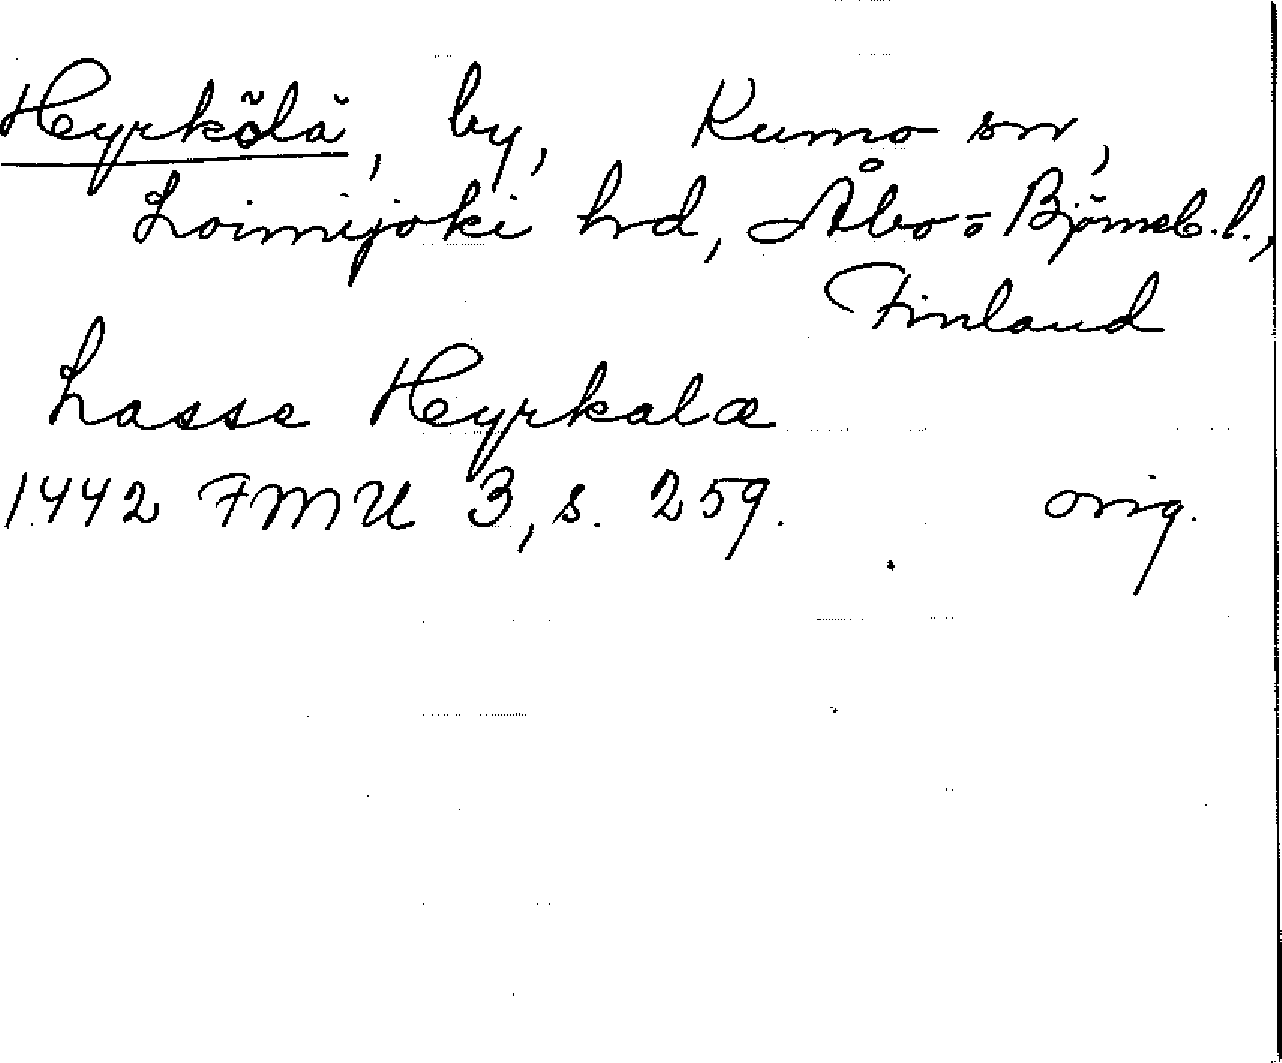 Heyrkölä, by, Kumo sn,
Loimijoki hd, Åbo-Björneb. l.,
Finland
Lasse Heyrkalæ
1442 FMU 3, s. 259. orig.